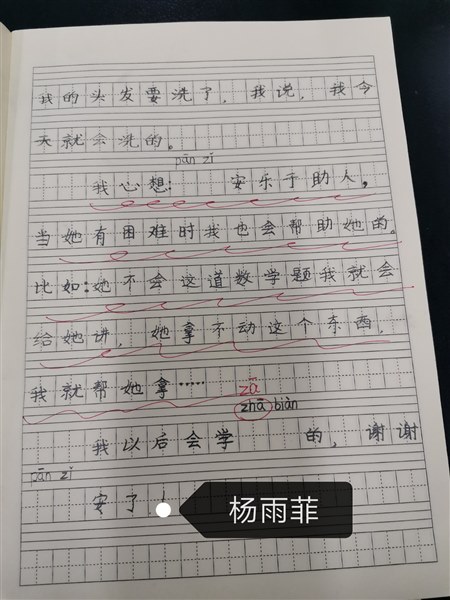 我的头发要洗了，我说，我今
天就会洗的。
pān zǐ
我心想： 安乐于助人，
当她有困难时我也会帮助她的。
比如：她不会这道数学题我就会
给她讲，她拿不动这个东西，
我就帮她拿……
zā
zhā biàn
我以后会学 的，谢谢
pān zǐ
安了！
杨雨菲